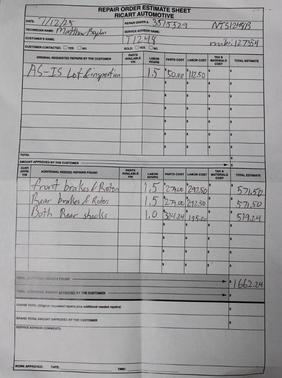 REPAIR ORDER ESTIMATE SHEET
RICART AUTOMOTIVE
DATE: 7/12/25 REPAIR ORDER #
TECHNICIAN NAME: Matthew SERVICE ADVISOR NAME:
CUSTOMER'S NAME: T1248
CUSTOMER CONTACTED: YES NO SOLD: YES NO
ORIGINAL REQUESTED REPAIRS BY THE CUSTOMER PARTS AVAILABLE Y/N LABOR HOURS PARTS COST LABOR COST TAX & MATERIALS COST TOTAL ESTIMATE
AS-IS Lot & inspection 1.5 $50.00 $112.50
TOTAL
AMOUNT APPROVED BY THE CUSTOMER
CUST. APPR. Y/N ADDITIONAL NEEDED REPAIRS FOUND: PARTS AVAILABLE Y/N LABOR HOURS PARTS COST LABOR COST TAX & MATERIALS COST TOTAL ESTIMATE
front brakes & Rotors 1.5 $279.00 $292.50 $571.50
Rear brakes & Rotors 1.5 $279.00 $292.50 $571.50
Both Rear shocks 1.0 $324.24 $195.00 $519.24
TOTAL ADDITIONAL REPAIRS FOUND $1662.24
TOTAL ADDITIONAL AMOUNT APPROVED BY THE CUSTOMER
GRAND TOTAL (Original requested repairs plus additional needed repairs)
GRAND TOTAL AMOUNT APPROVED BY THE CUSTOMER
SERVICE ADVISOR COMMENTS:
WORK APPROVED: DATE: TIME: